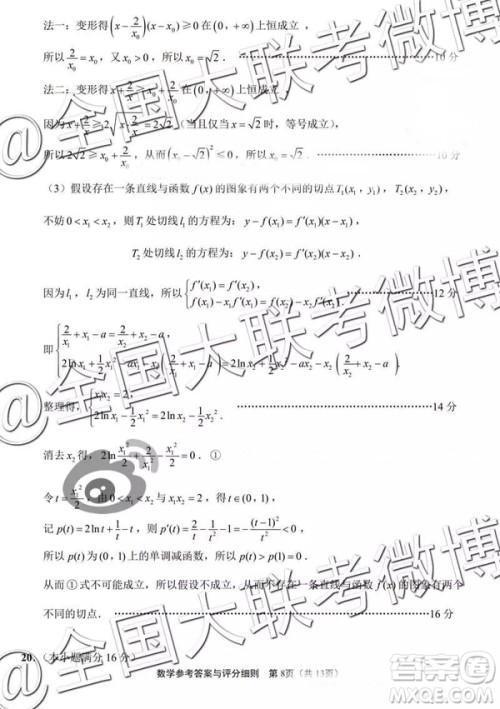 法一：变形得(x−2/x₀)(x−x₀)≥0在(0，+∞)上恒成立，
所以2/x₀=x₀，又x₀>0，所以x₀=√2．
法二：变形得x+2/x≥x₀+2/x₀在(0，+∞)上恒成立，
因为x+2/x≥2√(x·2/x)=2√2（当且仅当x=√2时，等号成立），
所以2√2≥x₀+2/x₀，从而(x₀−√2)²≤0，所以x₀=√2．……10分
（3）假设存在一条直线与函数f(x)的图象有两个不同的切点T₁(x₁，y₁)，T₂(x₂，y₂)，
不妨0<x₁<x₂，则T₁处切线l₁的方程为：y−f(x₁)=f′(x₁)(x−x₁)，
T₂处切线l₂的方程为：y−f(x₂)=f′(x₂)(x−x₂)．
因为l₁，l₂为同一直线，所以{f′(x₁)=f′(x₂)，f(x₁)−x₁f′(x₁)=f(x₂)−x₂f′(x₂)．……12分
即{2/x₁+x₁−a=2/x₂+x₂−a，2lnx₁+½x₁²−ax₁−x₁(2/x₁+x₁−a)=2lnx₂+½x₂²−ax₂−x₂(2/x₂+x₂−a)．
整理得，{x₁x₂=2，2lnx₁−½x₁²=2lnx₂−½x₂²．……14分
消去x₂得，2ln(x₁²/2)+2/x₁²−x₁²/2=0．①
令t=x₁²/2，由0<x₁<x₂与x₁x₂=2，得t∈(0，1)，
记p(t)=2lnt+1/t−t，则p′(t)=2/t−1/t²−1=−(t−1)²/t²<0，
所以p(t)为(0，1)上的单调减函数，所以p(t)>p(1)=0．
从而①式不可能成立，所以假设不成立，从而不存在一条直线与函数f(x)的图象有两个
不同的切点．……16分
20.（本小题满分16分）
数学参考答案与评分细则 第8页（共13页）
@全国大联考微博
@全国大联考微博
@全国大联考微博